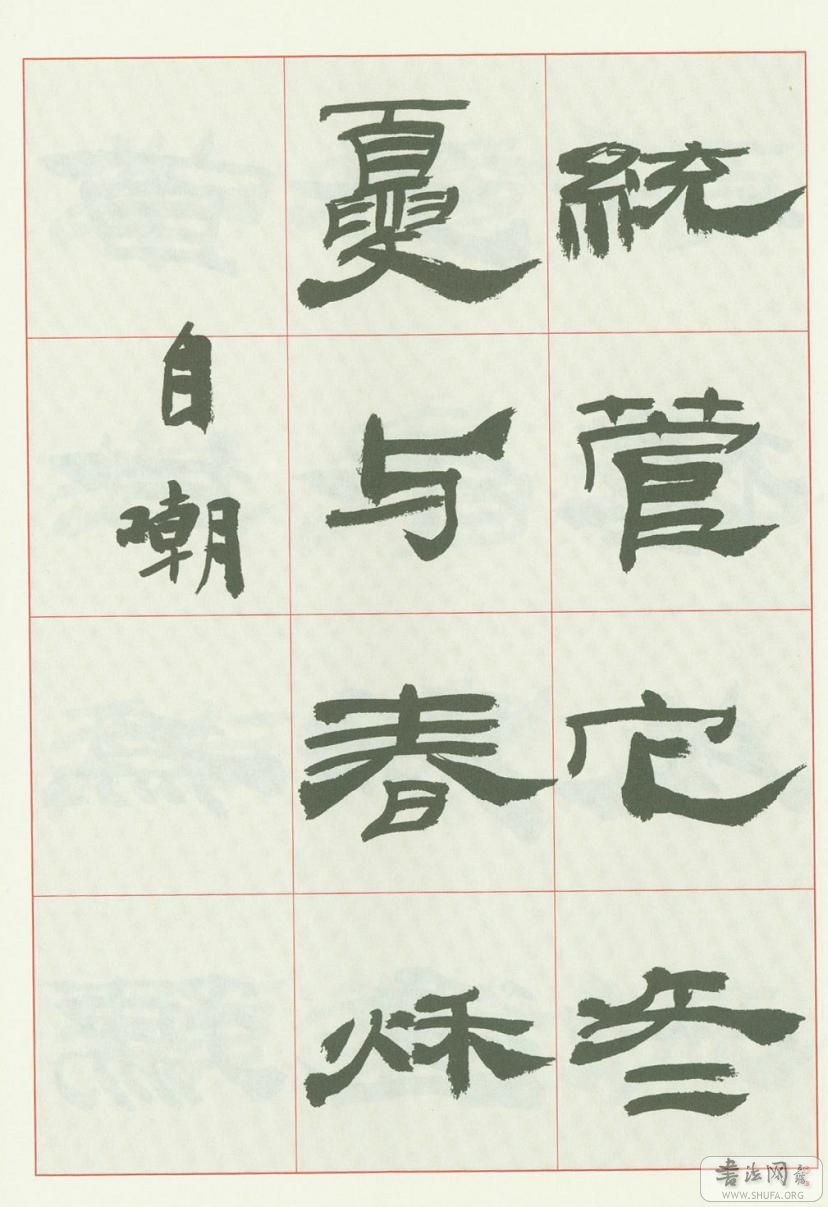 統管它冬
夏与春秌
自嘲
書法网
WWW.SHUFA.ORG